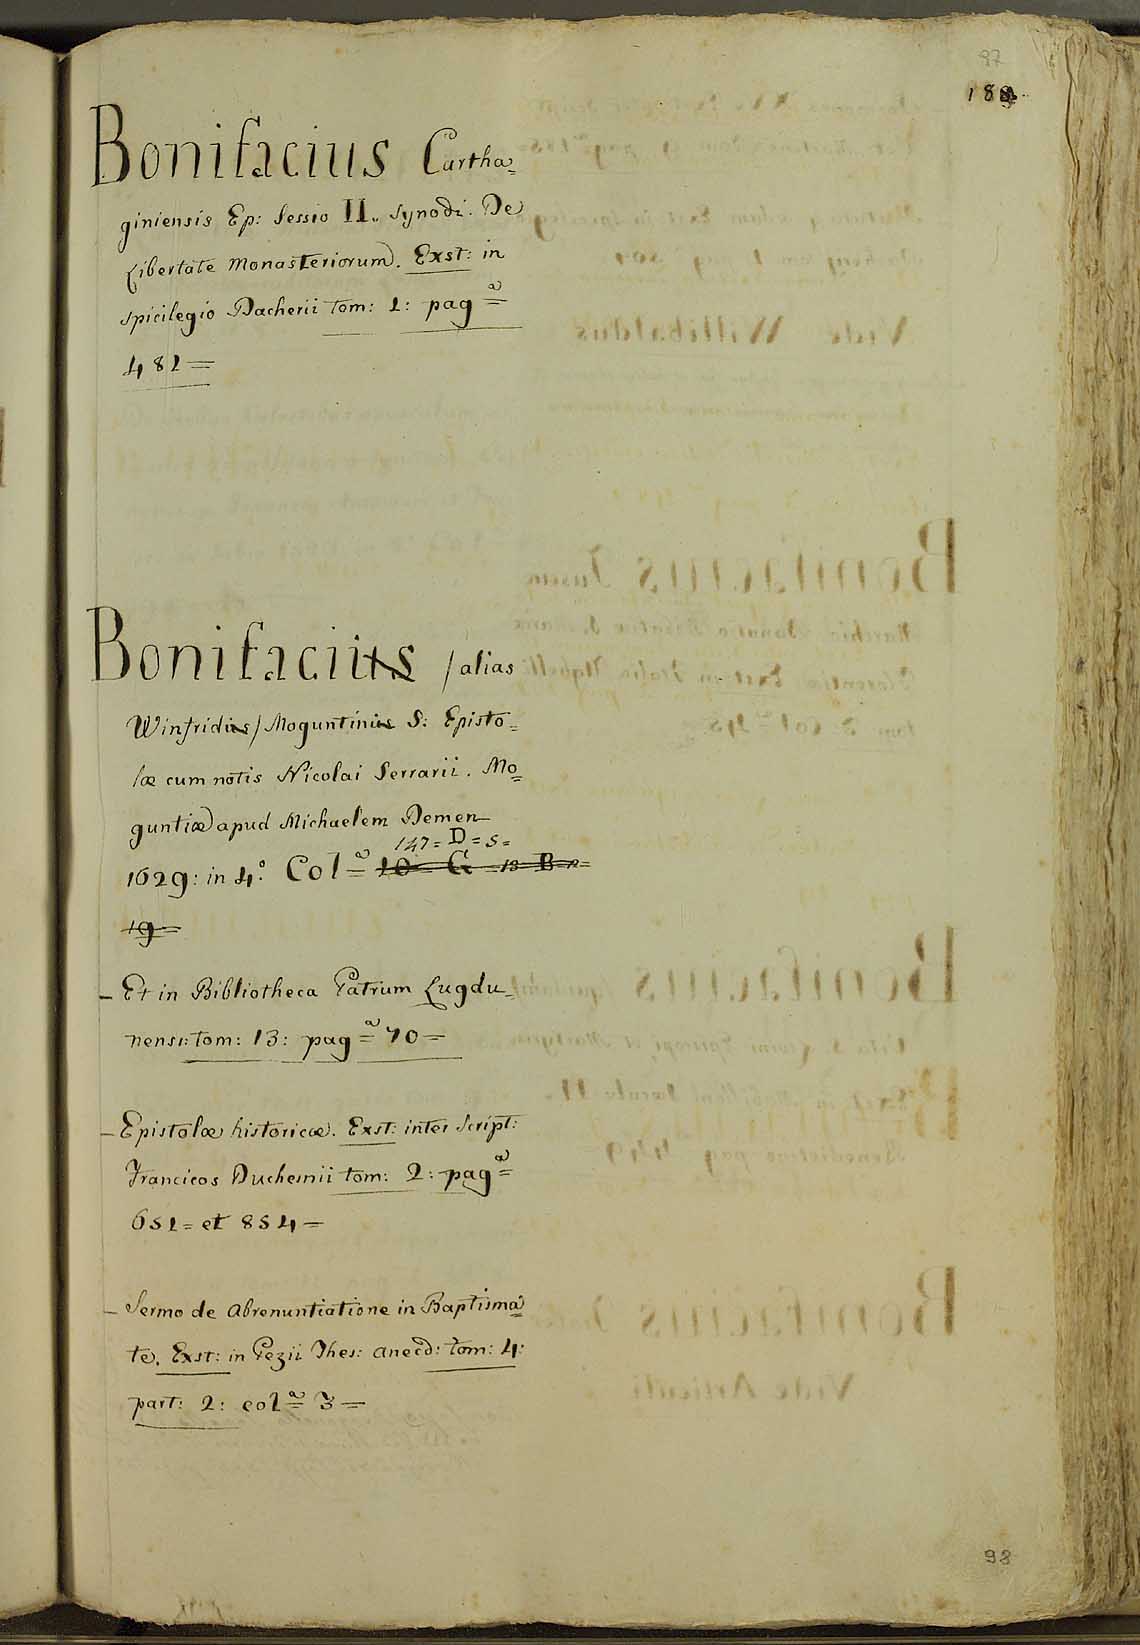 97
Bonifacius Cartha=
giniensis Ep: Sessio II. Synodi. De
Libertate Monasteriorum. Exst: in
spicilegio Dacherii tom: 1: pagᵃ=
481=
Bonifacius /alias
Winfridius/ Moguntinus S: Episto=
læ cum notis Nicolai Serrarii. Mo=
guntiæ apud Michaelem Demen
147= D= 5=
1629: in 4° Colᵃ= 10= G =13= B= n=
19=
– Et in Bibliotheca Patrum Lugdu=
nensi: tom: 13: pagᵃ= 70=
– Epistolæ historicæ. Exst: inter Script:
Francicos Duchesnii tom: 2: pagᵃ=
651= et 854=
– Sermo de abrenuntiatione in Baptisma=
te. Exst: in Pezii Thes: anecd: tom: 4:
part: 2: colᵃ= 3=
98